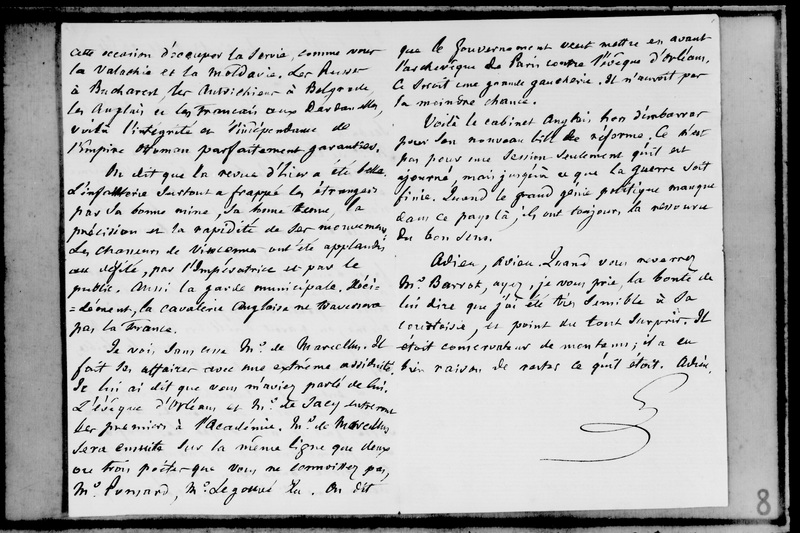 cette occasion d'occuper la Servie, comme vous
la Valachie et la Moldavie. Les Russes
à Bucharest, les Autrichiens à Belgrade,
les Anglais et les Français aux Dardanelles,
voilà l'intégrité et l'indépendance de
l'Empire Ottoman parfaitement garanties.
On dit que la revue d'hier a été belle.
L'infanterie surtout a frappé les étrangers
par sa bonne mine, sa bonne tenue, la
précision et la rapidité de ses mouvemens.
Les chasseurs de Vincennes ont été applaudis
au défilé, par l'Impératrice et par le
public. Aussi la garde municipale. Déci-
=dément, la cavalerie Anglaise ne traversera
pas la France.
Je vois sans cesse Mr. de Marcellus. Il
fait ses affaires avec une extrême assiduité.
Je lui ai dit que vous m'aviez parlé de lui.
L'évêque d'Orléans et Mr. de Sacy entreront
les premiers à l'Académie. Mr. de Marcellus
sera ensuite sur la même ligne que deux
ou trois poëtes que vous ne connoissez pas,
Mr. Ponsard, Mr. Legouvé &a. On dit
que le Gouvernement veut mettre en avant
l'archevêque de Paris contre l'évêque d'Orléans.
Ce seroit une grande gaucherie. Il n'auroit pas
la moindre chance.
Voilà le cabinet Anglais hors d'embarras
pour son nouveau bill de réforme. Ce n'est
pas pour une session seulement qu'il est
ajourné mais jusqu'à ce que la guerre soit
finie. Quand le grand génie politique manque
dans ce pays là, ils ont toujours la ressource
du bon sens.
Adieu, Adieu. Quand vous reverrez
Mr. Barrot, ayez, je vous prie, la bonté de
lui dire que j'ai été très sensible à sa
courtoisie, et point du tout surpris. Il
était conservateur de mon tems; il a eu
bien raison de rester ce qu'il était. Adieu.
G
8